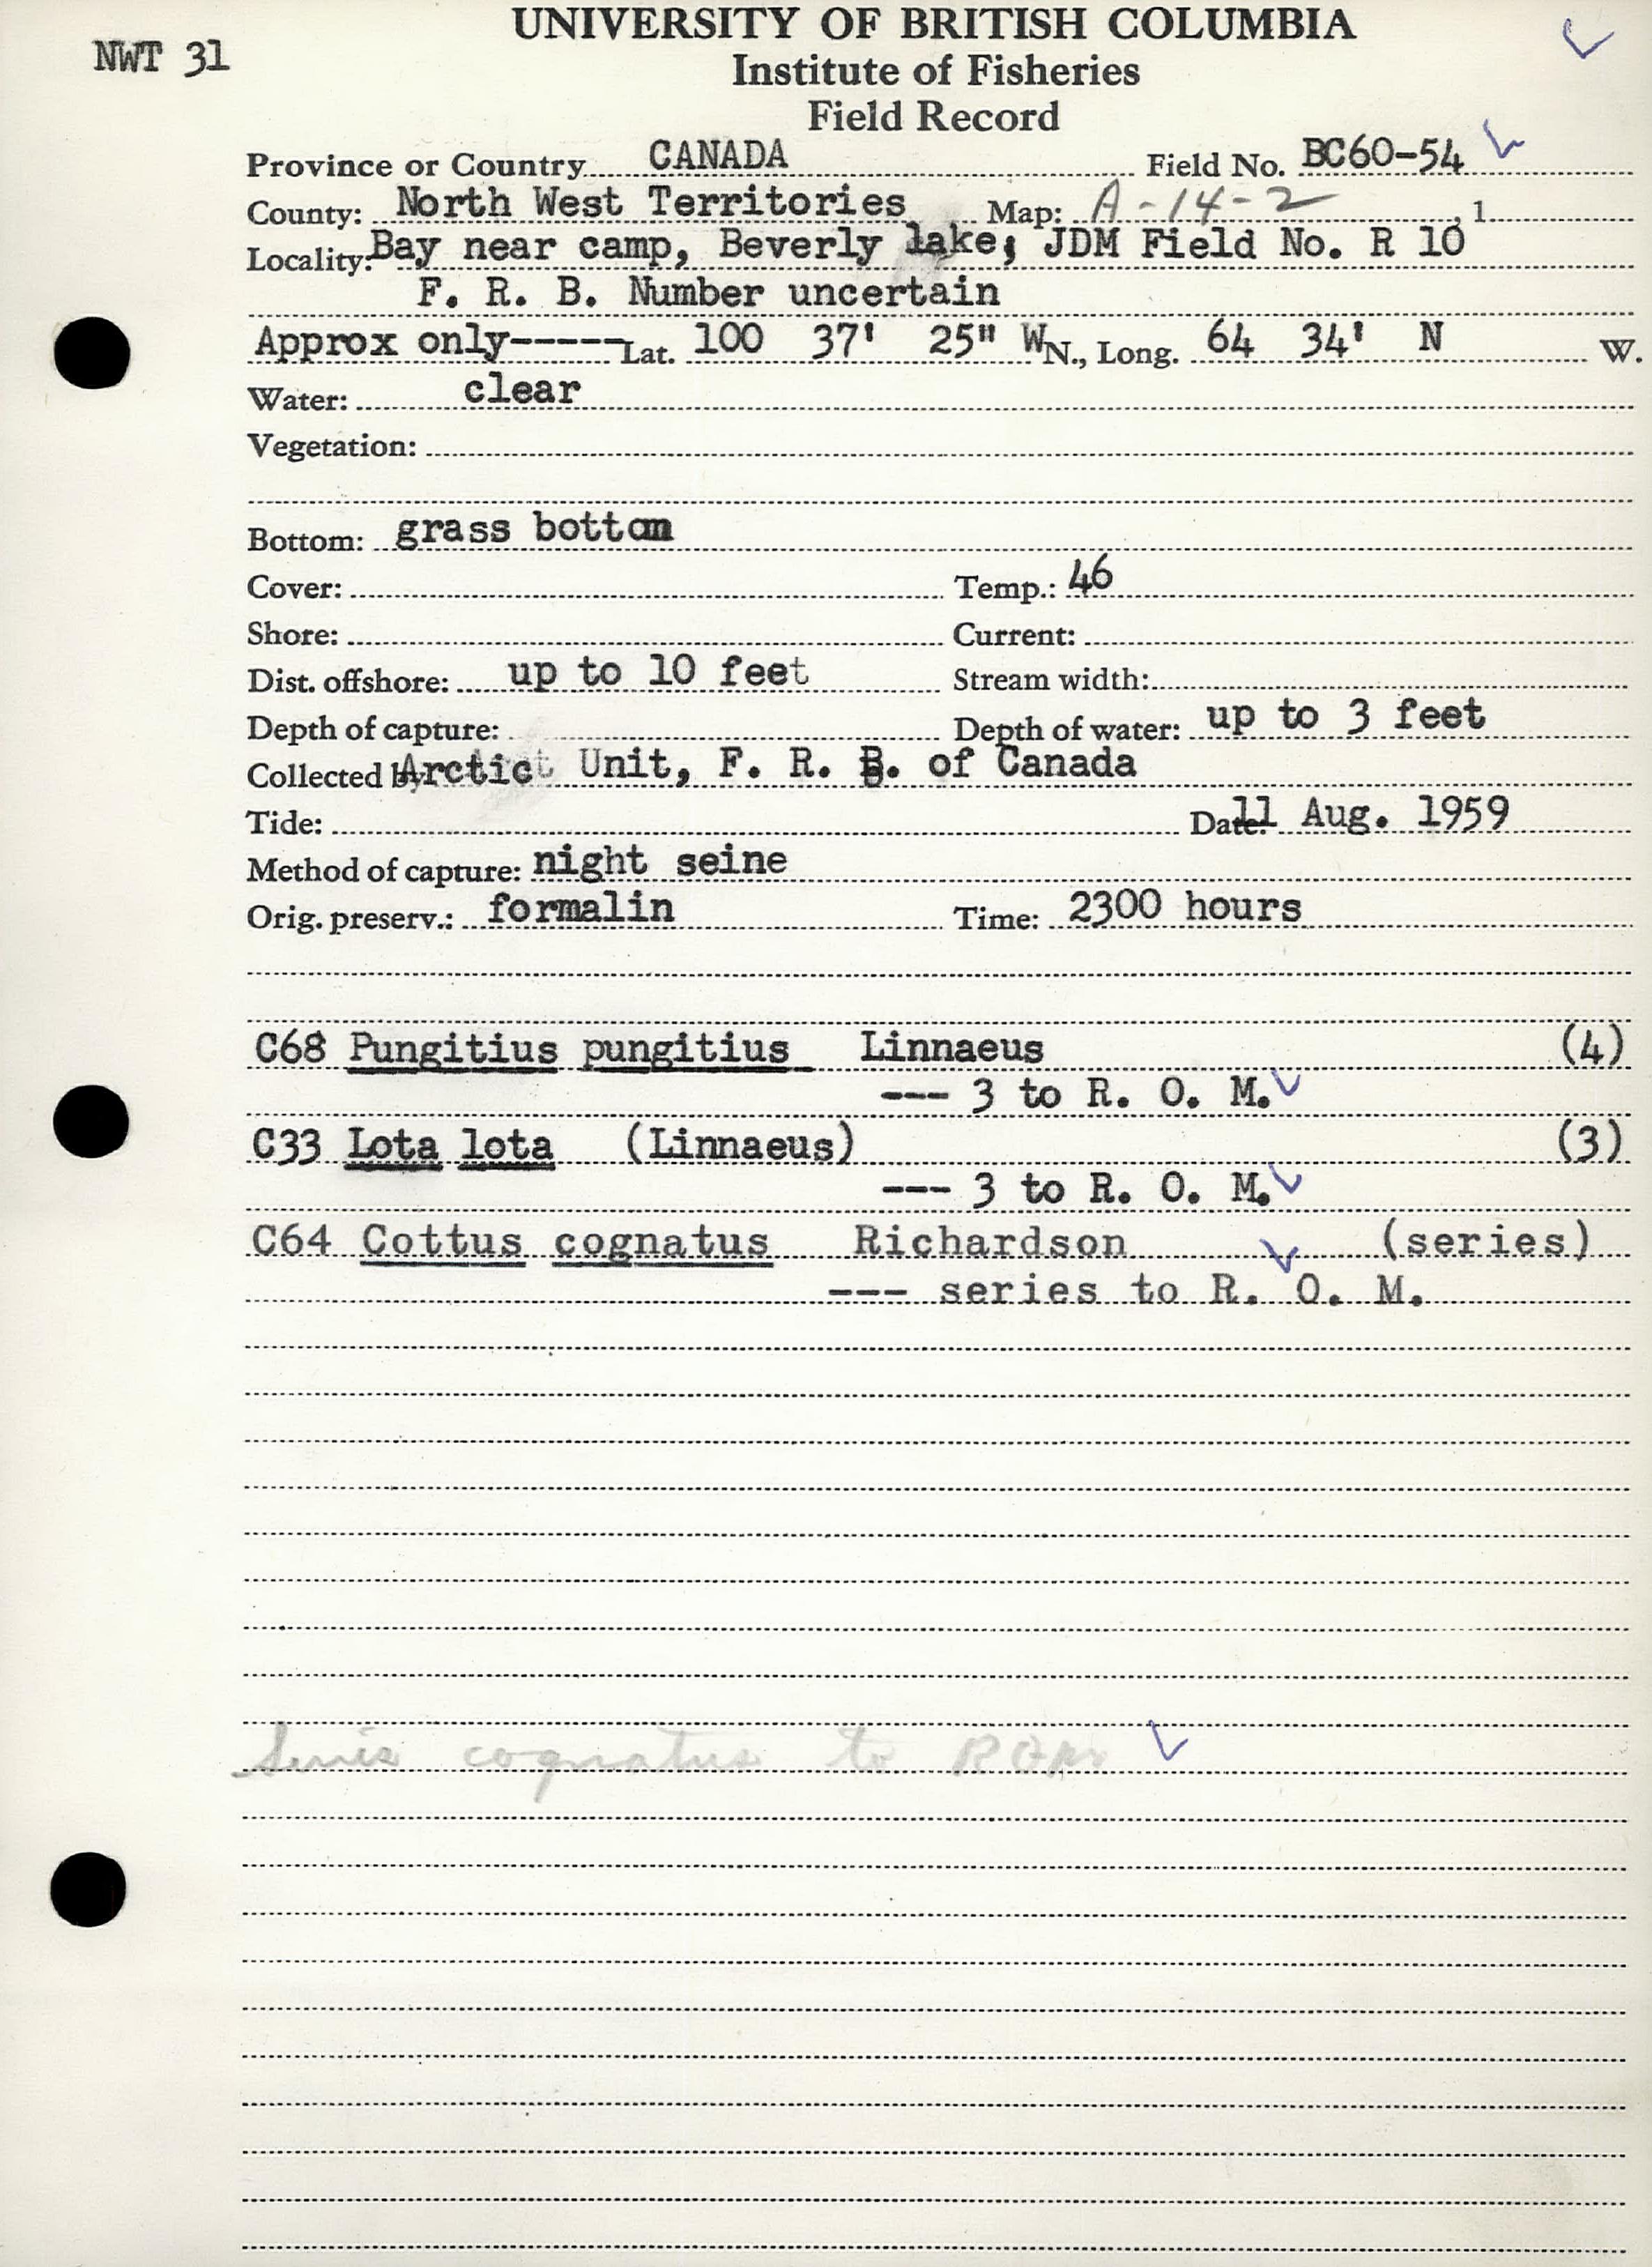 UNIVERSITY OF BRITISH COLUMBIA
NWT 31
Institute of Fisheries
Field Record
Province or Country CANADA Field No. BC60-54
County: North West Territories Map: A-14-2, 1
Locality: Bay near camp, Beverly lake; JDM Field No. R 10
F. R. B. Number uncertain
Approx only-----Lat. 100 37' 25" W N., Long. 64 34' N W.
Water: clear
Vegetation:
Bottom: grass bottom
Cover: Temp.: 46
Shore: Current:
Dist. offshore: up to 10 feet Stream width:
Depth of capture: Depth of water: up to 3 feet
Collected by Arctic Unit, F. R. B. of Canada
Tide: Date: 11 Aug. 1959
Method of capture: night seine
Orig. preserv.: formalin Time: 2300 hours
C68 Pungitius pungitius Linnaeus (4)
--- 3 to R. O. M.
C33 Lota lota (Linnaeus) (3)
--- 3 to R. O. M.
C64 Cottus cognatus Richardson (series)
--- series to R. O. M.
Series cognatus to ROM